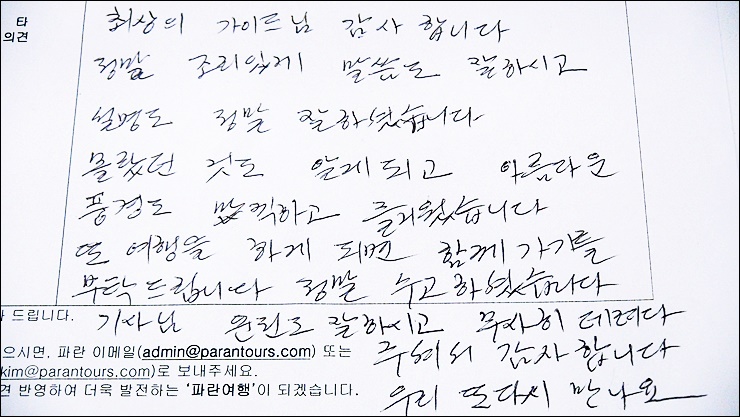 타
의견
최상의 가이드님 감사 합니다
정말 조리있게 말씀도 잘하시고
설명도 정말 잘하셨습니다
몰랐던 것도 알게되고 아름다운
풍경도 만끽하고 즐거웠습니다
또 여행을 하게 되면 함께 가기를
부탁드립니다 정말 수고하셨습니다
드립니다. 기사님 운전도 잘하시고 무사히 데려다
으시면, 파란 이메일(admin@parantours.com) 또는 주셔서 감사합니다
kim@parantours.com)로 보내주세요.
견 반영하여 더욱 발전하는 '파란여행'이 되겠습니다. 우리 또다시 만나요